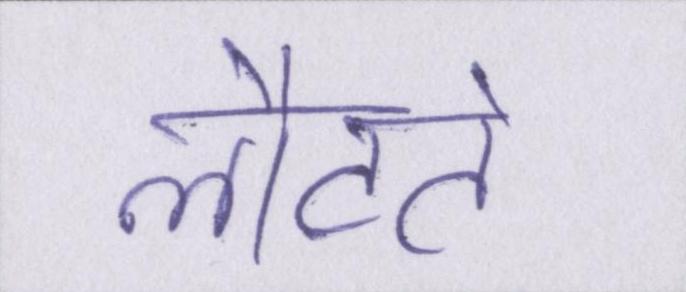 लौटते